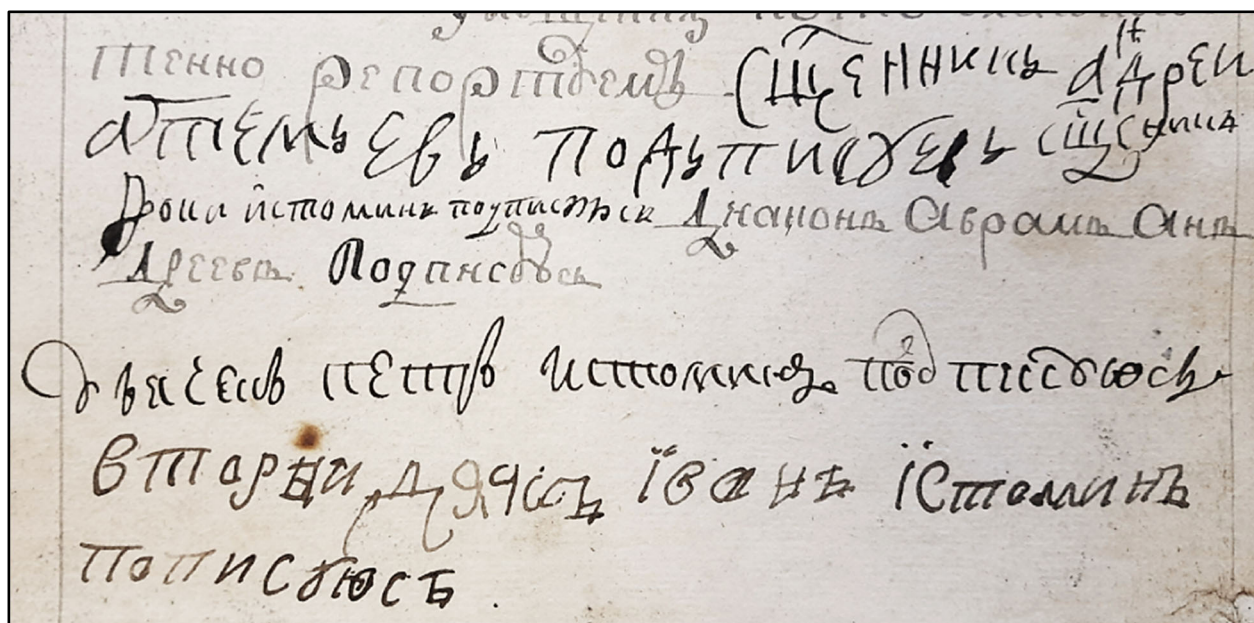 тенно репортуемъ сщенникъ аⷩдреи
артемьевъ подьписуесь сщенникъ
їстоминъ подписуюсь Диаконъ Аврамъ Анъ
Дреевъ Подписуюсь
дьячекъ петръ истоминъ подписуюсь
вторыи дячокъ їванъ їстоминъ
пописуюсъ.